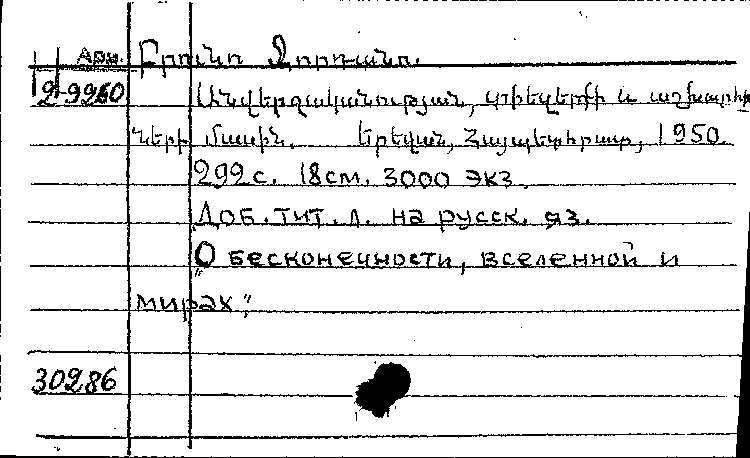 Арм. Բրունո Ջորդանո.
2-9960 Անվերջականության, տիեզերքի և աշխարհ
ների մասին. Երեվան, Հայպետհրատ, 1950.
292 с. 18 см. 3000 экз.
Доб. тит. л. на русск. яз.
„О бесконечности, вселенной и
мирах“,
30286